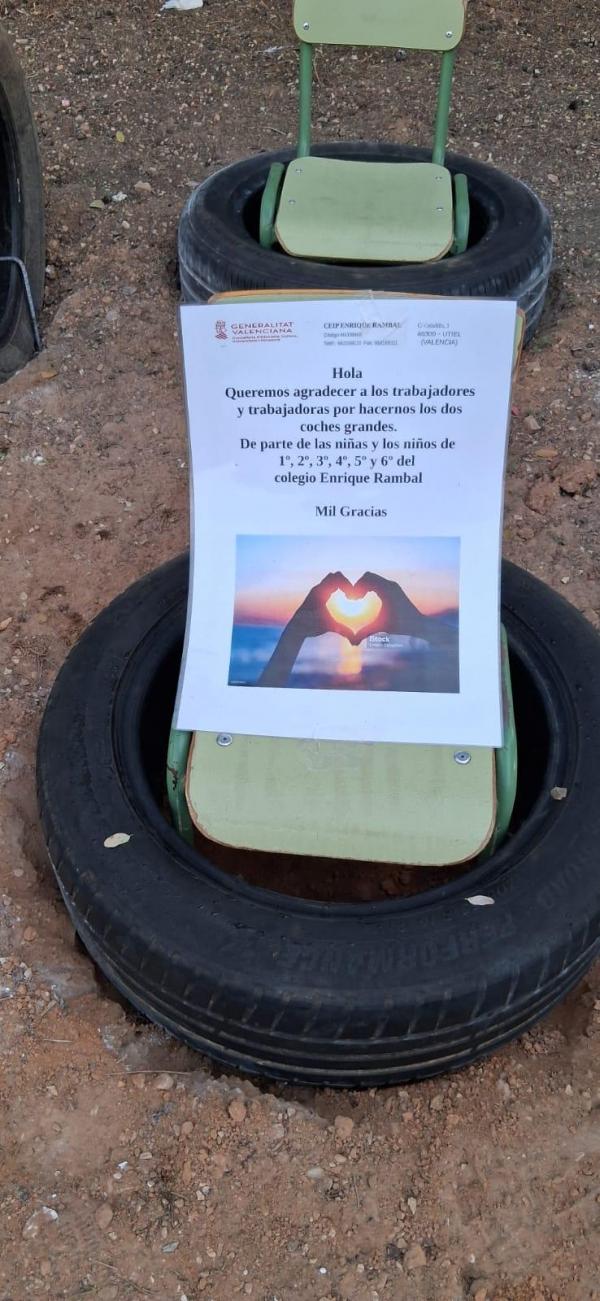 GENERALITAT
VALENCIANA
CEIP ENRIQUE RAMBAL
46300 - UTIEL
(VALENCIA)
Hola
Queremos agradecer a los trabajadores
y trabajadoras por hacernos los dos
coches grandes.
De parte de las niñas y los niños de
1º, 2º, 3º, 4º, 5º y 6º del
colegio Enrique Rambal
Mil Gracias
iStock
PERFORMANCE